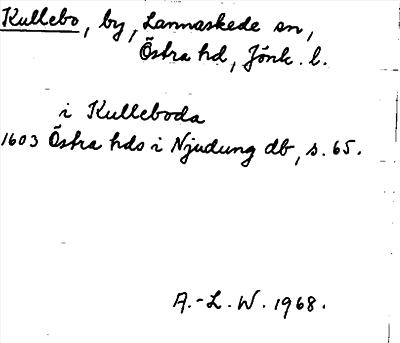 Kullebo, by, Lannaskede sn,
Östra hd, Jönk. l.
i Kulleboda
1603 Östra hds i Njudung db, s. 65.
A.-L. W. 1968.